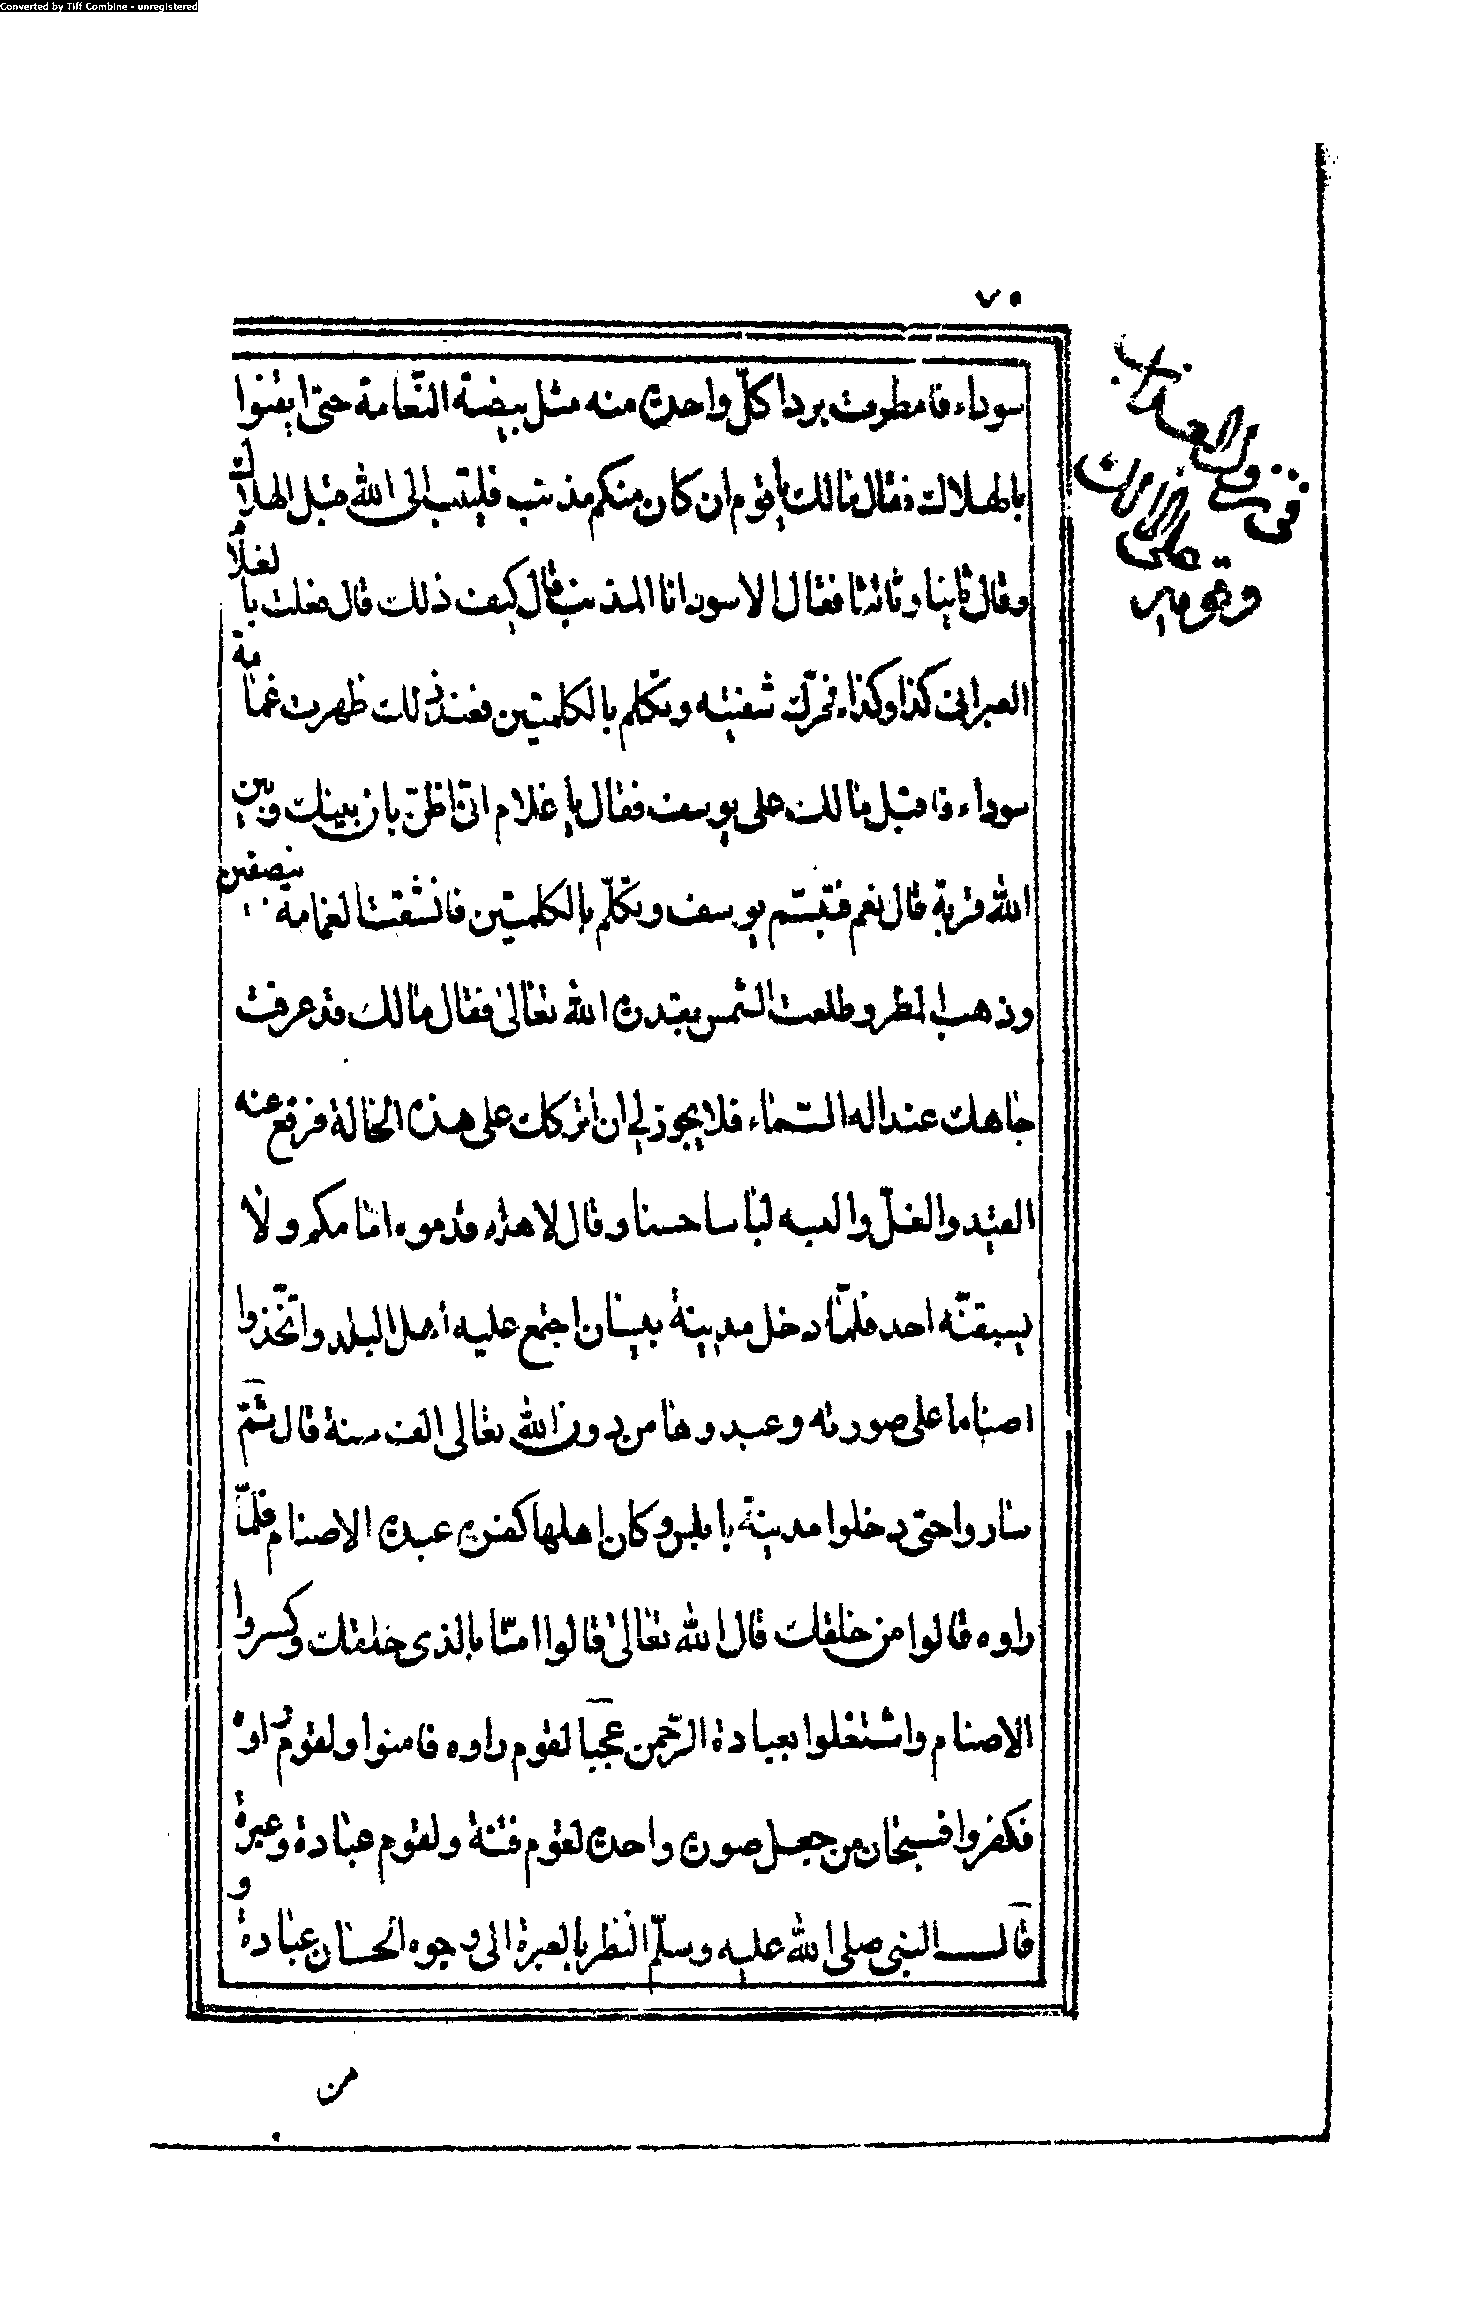 Converted by Tiff Combine - unregistered
٧٠
سوداء فامطرت بردا كلّ واحدة منه مثل بيضة النّعامة حتى ايقنوا
بالهلاك فقال مالك يا قوم ان كان منكم مذنب فليتب الى الله قبل الهلاك
وقال ثانيا وثالثا فقال الاسود انا المذنب قال كيف ذلك قال فعلت بالغلام
العبرانى كذا وكذا فحرّك شفتيه وتكلم بالكلمتين فعند ذلك ظهرت غمامة
سوداء فاقبل مالك على يوسف فقال يا غلام انى اظنّ بان بينك وبين
الله قربة قال نعم فتبسّم يوسف وتكلّم بالكلمتين فانشقت الغمامة بنصفين
وذهب المطر وطلعت الشمس بقدرة الله تعالى فقال مالك قد عرفت
جاهك عند اله السّماء فلا يجوز لى ان اتركك على هذه الحالة فرفع عنه
القيد والغلّ والبسه لباسا حسنا وقال لاهله قدموه امامكم ولا
يسبقنّه احد فلمّا دخل مدينة بيسان اجتمع عليه اهل البلد واتّخذوا
اصناما على صورته وعبدوها من دون الله تعالى الف سنة قال ثمّ
ساروا حتى دخلوا مدينة بابلس وكان اهلها كفرة عبدة الاصنام فلمّا
راوه قالوا من خلقك قال الله تعالى قالوا امنّا بالذى خلقك وكسروا
الاصنام واشتغلوا بعبادة الرّحمن عجبا لقوم راوه فامنوا ولقوم راوه
فكفروا فسبحان من جعل صورة واحدة لقوم فتنة ولقوم عبادة وعبرة
قال النبى صلى الله عليه وسلّم النظر بالعبرة الى وجوه الحسان عبادة و
من